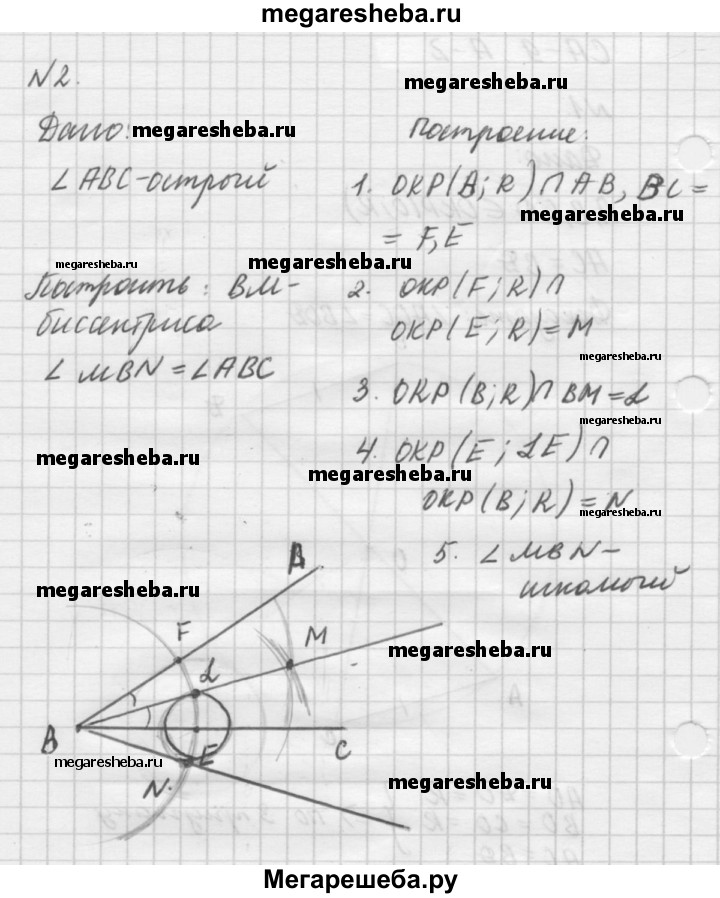 megaresheba.ru
N2.
megaresheba.ru
Дано: megaresheba.ru
Построение:
∠ABC-острый
1. ОКР(B; R) ∩ AB, BC =
megaresheba.ru
= F, E
megaresheba.ru
megaresheba.ru
Построить: BM-
биссектриса
∠MBN = ∠ABC
2. ОКР(F; R) ∩
ОКР(E; R) = M
megaresheba.ru
3. ОКР(B; R) ∩ BM = L
megaresheba.ru
megaresheba.ru
4. ОКР(E; LE) ∩
megaresheba.ru
ОКР(B; R) = N
megaresheba.ru
5. ∠MBN-
искомый
megaresheba.ru
F
M
megaresheba.ru
L
B
E
C
megaresheba.ru
N.
megaresheba.ru
Мегарешеба.ру